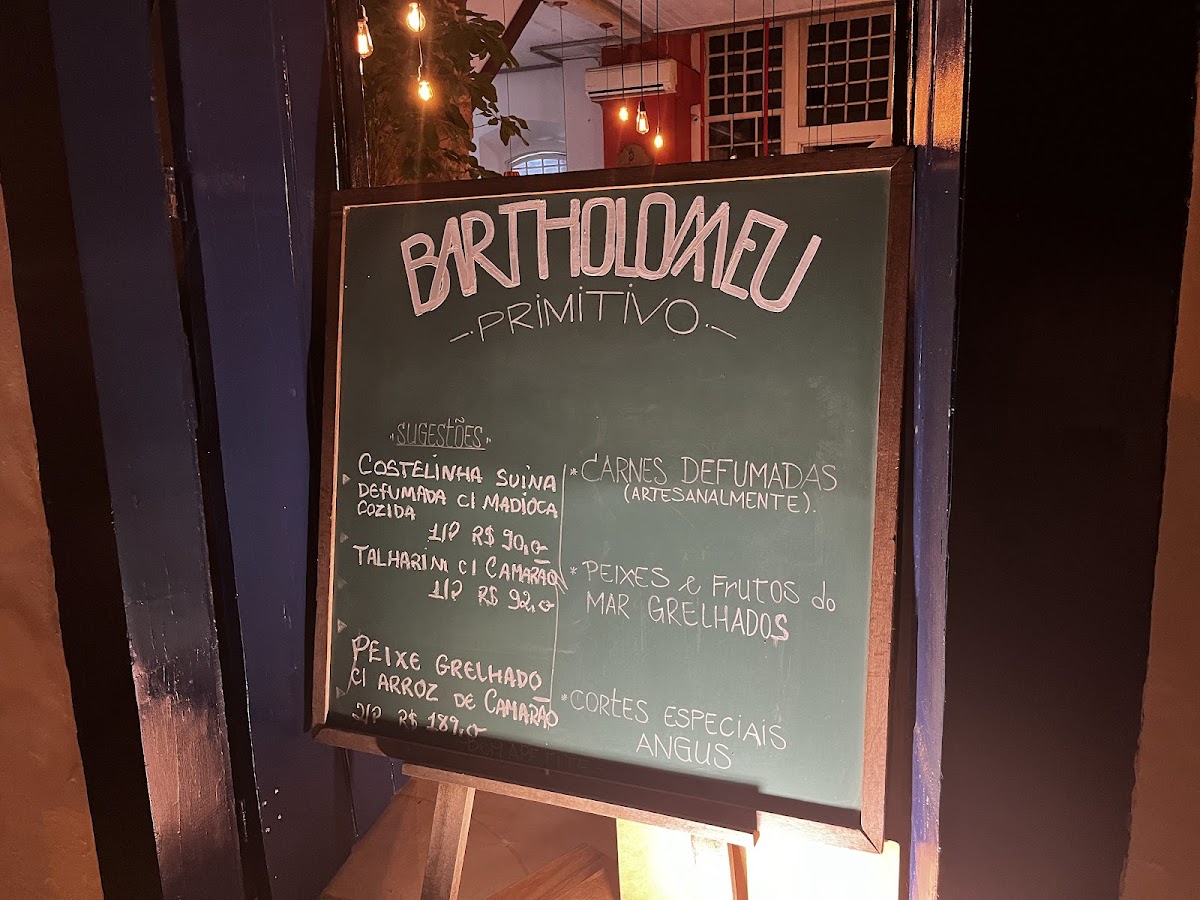 BARTHOLOMEU
-.PRIMITIVO.-
"SUGESTÕES"
COSTELINHA SUINA
DEFUMADA C/ MADIOCA
COZIDA
1/P R$ 90,0
TALHARINI C/ CAMARÃO
1/P R$ 92,0
PEIXE GRELHADO
C/ ARROZ DE CAMARÃO
2/P R$ 189,0
* CARNES DEFUMADAS
(ARTESANALMENTE).
* PEIXES e FRUTOS do
MAR GRELHADOS
* CORTES ESPECIAIS
ANGUS